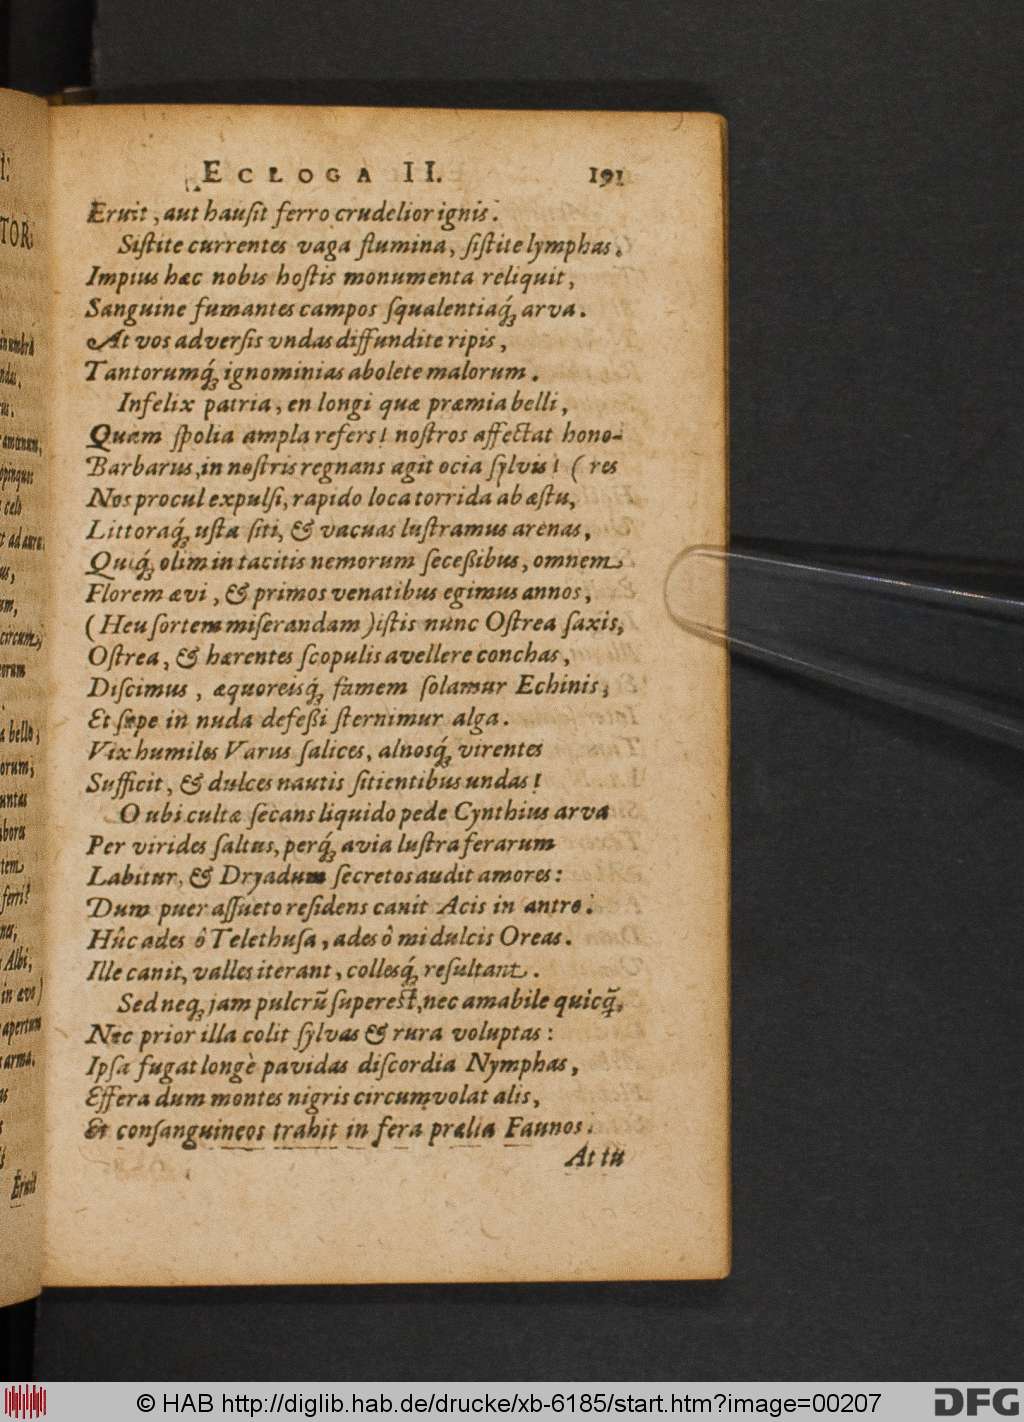 ECLOGA II. 191
Eruit, aut hauſit ferro crudelior ignis.
Siſtite currentes vaga flumina, ſiſtite lymphas.
Impius hæc nobis hoſtis monumenta reliquit,
Sanguine fumantes campos ſqualentiaq́ꝫ arva.
At vos adverſis vndas diffundite ripis,
Tantorumq́ꝫ ignominias abolete malorum.
Infelix patria, en longi quæ præmia belli,
Quam ſpolia ampla refers! noſtros affectat hono-
Barbarus, in noſtris regnans agit ocia ſylvis! (res
Nos procul expulſi, rapido loca torrida ab æſtu,
Littoraq́ꝫ uſta ſiti, & vacuas luſtramus arenas,
Quiq́ꝫ olim in tacitis nemorum ſeceßibus, omnem
Florem ævi, & primos venatibus egimus annos,
(Heu ſortem miſerandam) iſtis nunc Oſtrea ſaxis,
Oſtrea, & hærentes ſcopulis avellere conchas,
Diſcimus, æquoreisq́ꝫ famem ſolamur Echinis,
Et ſæpe in nuda defeßi ſternimur alga.
Vix humiles Varus ſalices, alnosq́ꝫ virentes
Sufficit, & dulces nautis ſitientibus undas!
O ubi cultæ ſecans liquido pede Cynthius arva
Per virides ſaltus, perq́ꝫ avia luſtra ferarum
Labitur, & Dryadum ſecretos audit amores:
Dum puer aſſueto reſidens canit Acis in antro.
Hûc ades ô Telethuſa, ades ô mi dulcis Oreas.
Ille canit, valles iterant, collesq́ꝫ reſultant.
Sed neqꝫ jam pulcrũ ſupereſt, nec amabile quicq̃,
Nec prior illa colit ſylvas & rura voluptas:
Ipſa fugat longè pavidas diſcordia Nymphas,
Effera dum montes nigris circumvolat alis,
Et conſanguineos trahit in fera prælia Faunos.
At tu
TOR.
Eruit
© HAB http://diglib.hab.de/drucke/xb-6185/start.htm?image=00207
DFG